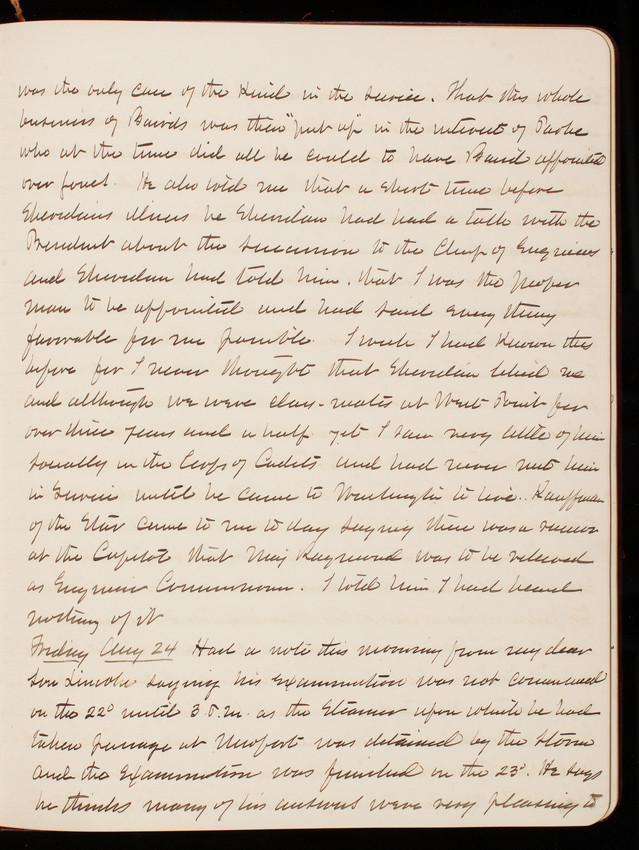 was the only case of the kind in the service. That this whole
business of Bairds was then "put up" in the interest of Parke
who at the time did all he could to have Baird appointed
over forest. He also told me that a short time before
Sheridans illness he Sheridan had had a talk with the
President about the succession to the Chief of Engineers
and Sheridan had told him, that I was the proper
man to be appointed and had said every thing
favorable for me possible. I wish I had known this
before for I never thought that Sheridan liked me
and although we were class-mates at West Point for
over three years and a half yet I saw very little of him
socially in the Corps of Cadets and had never met him
in service until he came to Washington to live. Kauffman
of the Star came to me to day saying there was a rumor
at the Capitol that Maj Raymond was to be relieved
as Engineer Commissioner. I told him I had heard
nothing of it
Friday Aug 24 Had a note this morning from my dear
Son Lincoln saying his examination was not commenced
on the 22d until 3 P.m. as the Steamer upon which he had
taken passage at Newport was detained by the storm
and the examination was finished on the 23d. He says
he thinks many of his answers were very pleasing to